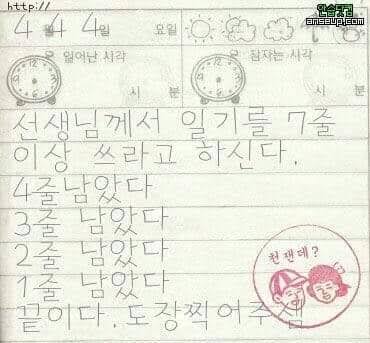 http://
연습닷컴
anseup.com
4월 4일 요일
일어난 시각
잠자는 시각
시 분
시 분
선생님께서 일기를 7줄
이상 쓰라고 하신다.
4줄남았다
3줄 남았다
2줄 남았다
1줄 남았다
끝이다. 도장찍어주셈
천잰데?